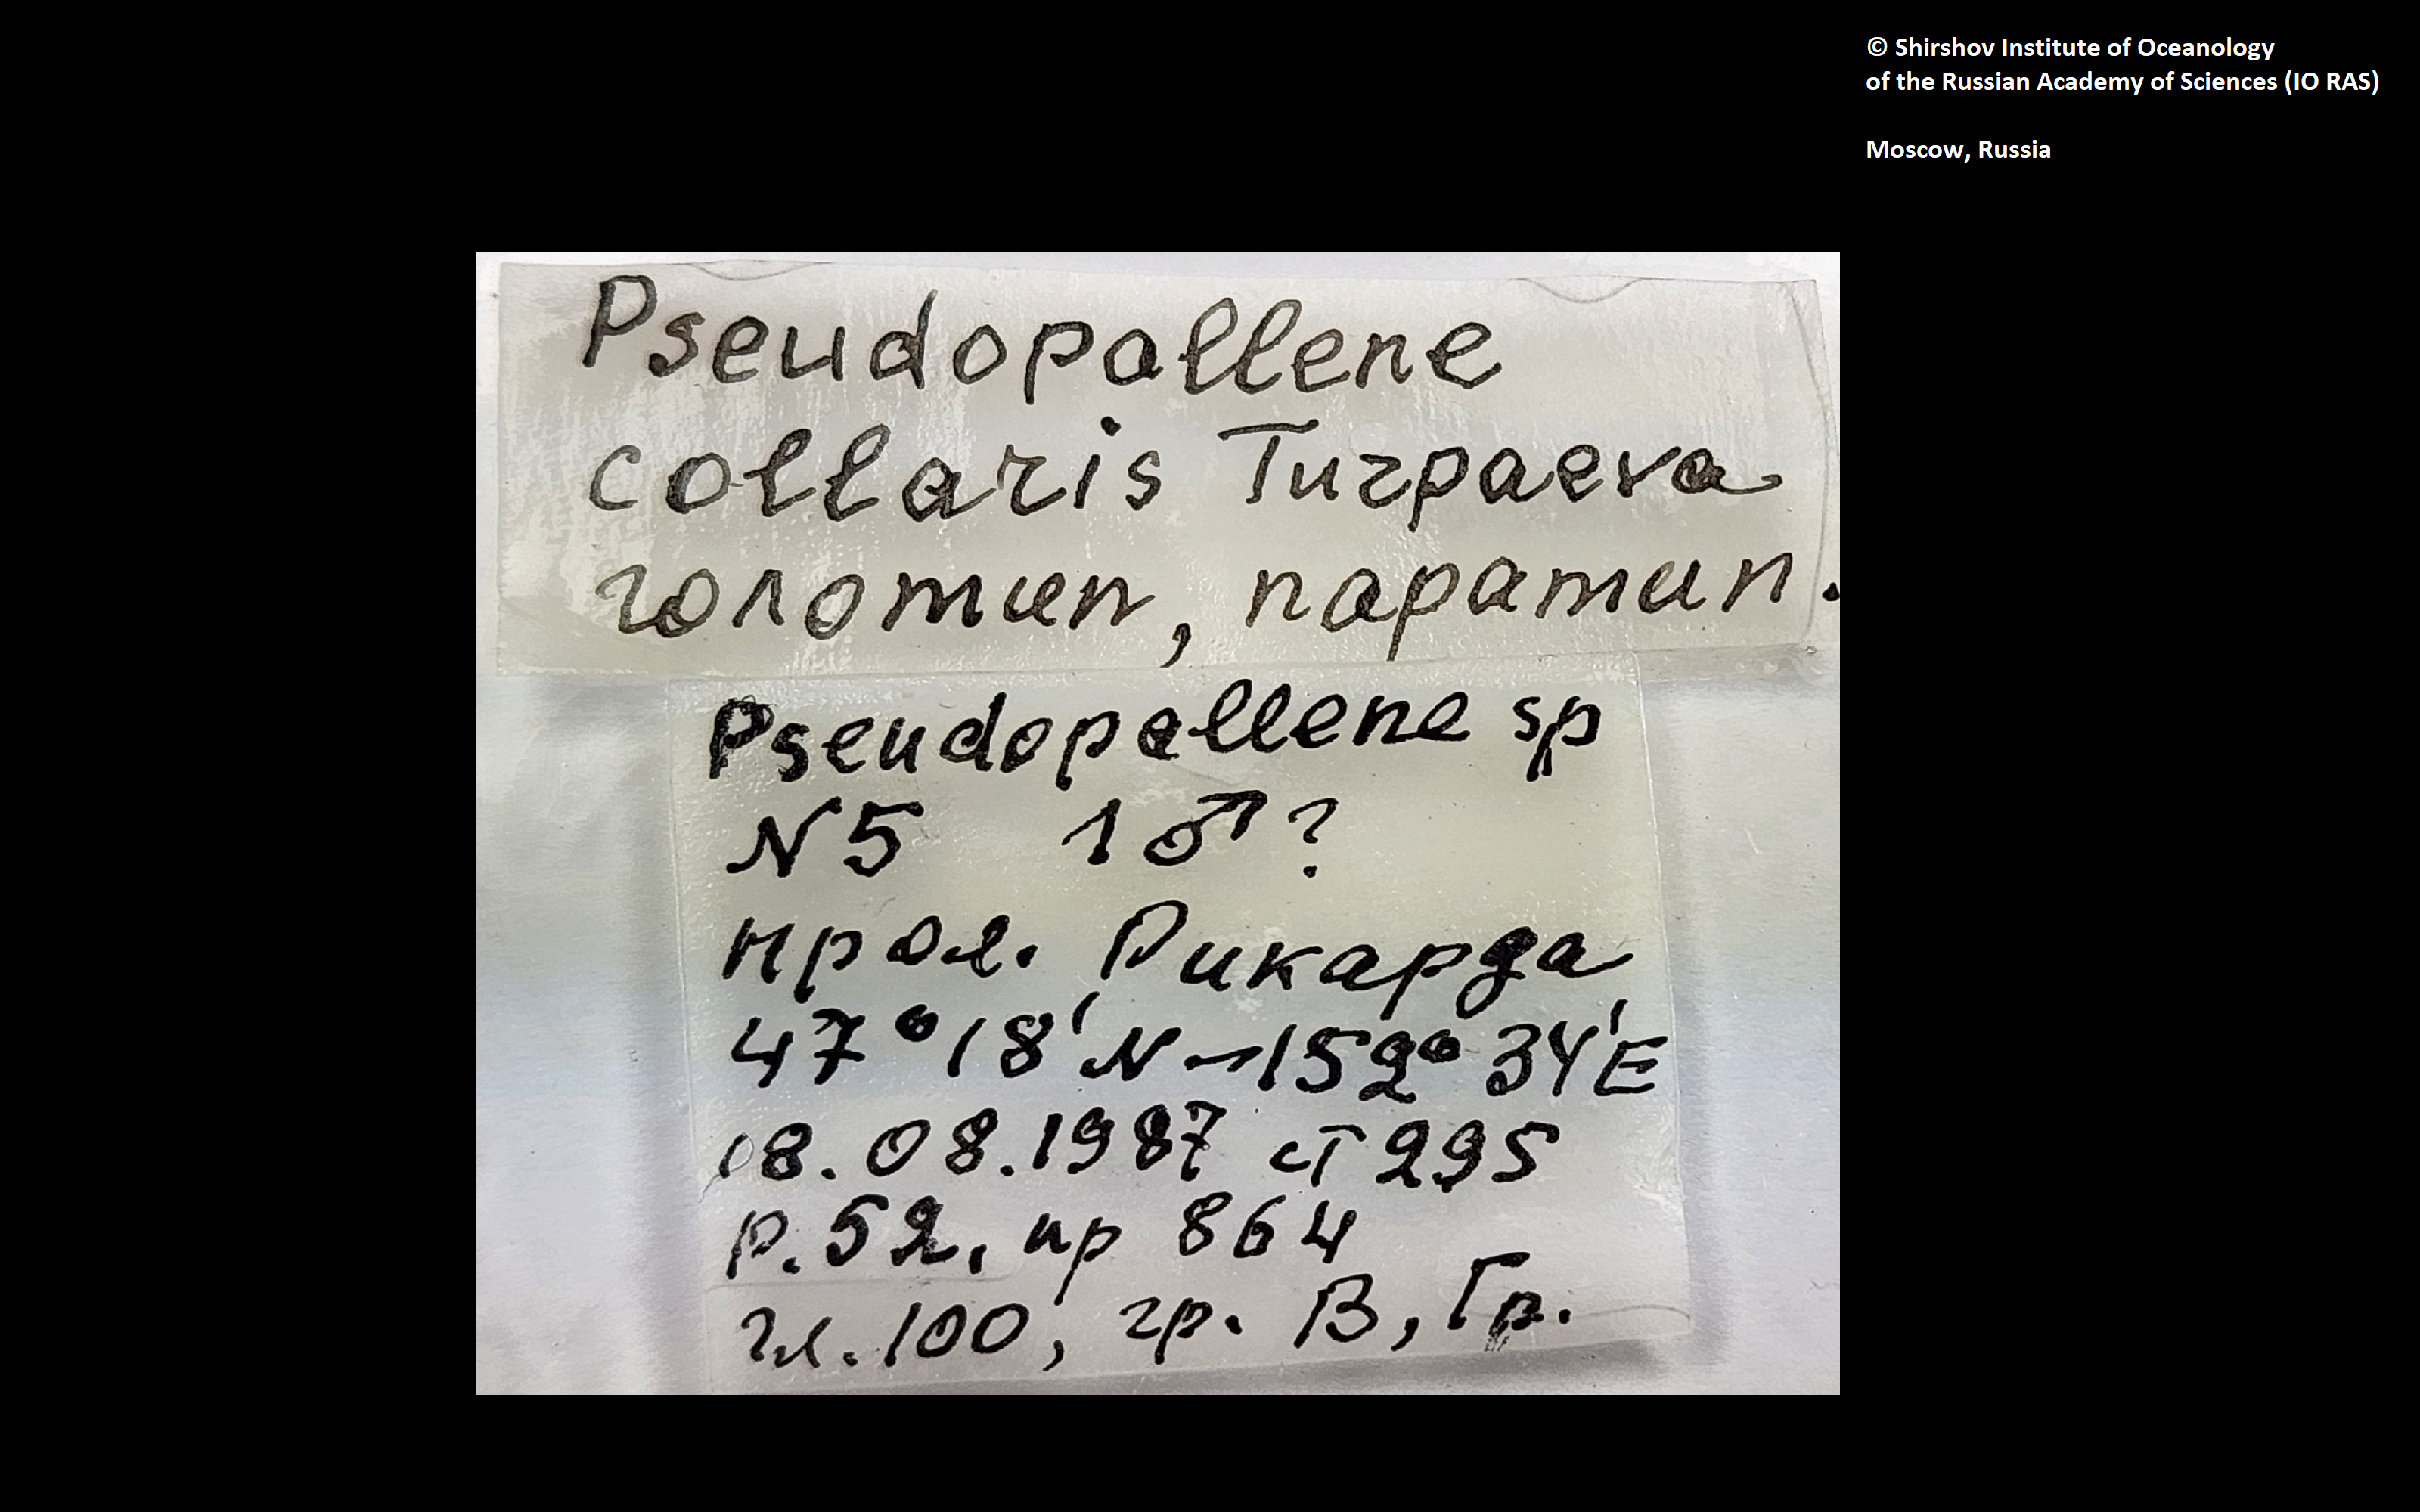 © Shirshov Institute of Oceanology
of the Russian Academy of Sciences (IO RAS)
Moscow, Russia
Pseudopallene
collaris Turpaeva
голотип, паратип.
Pseudopallene sp
N5 1♂?
прол. Рикарда
47°18'N-152°34'E
18.08.1987 ст 295
р.52, пр 864
гл.100, гр. В, Гр.